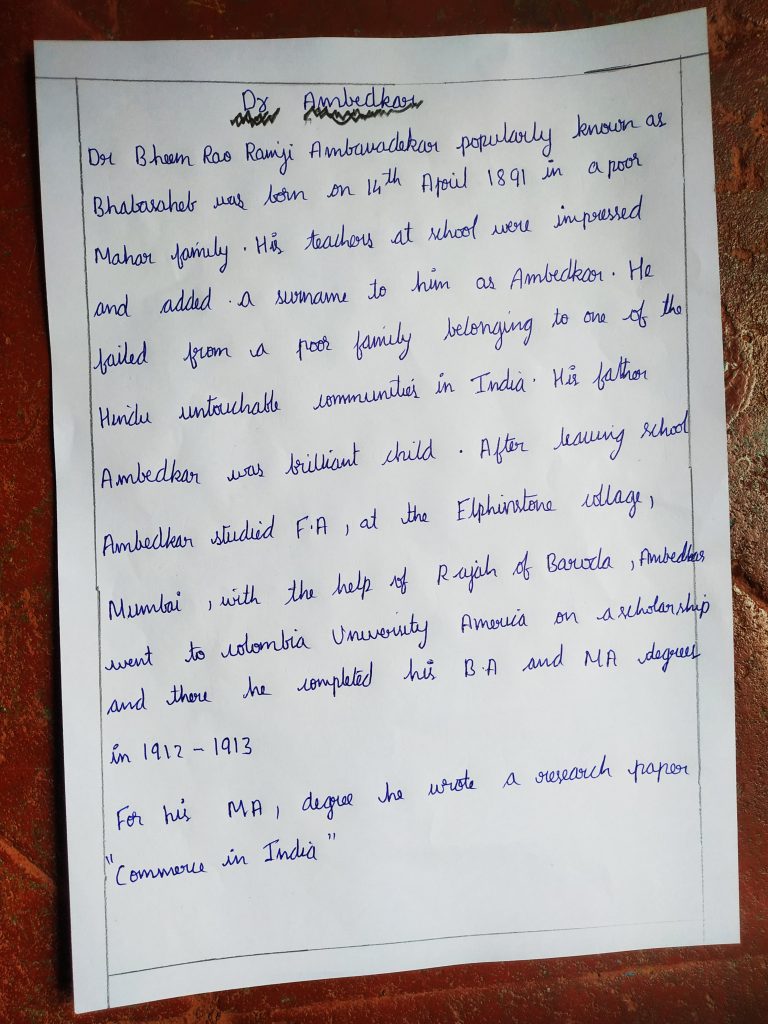 Dr Ambedkar
Dr Bheem Rao Ramji Ambavadekar popularly known as
Bhabasaheb was born on 14th April 1891 in a poor
Mahar family. His teachers at school were impressed
and added a surname to him as Ambedkar. He
failed from a poor family belonging to one of the
Hindu untouchable communities in India. His father
Ambedkar was brilliant child. After leaving school
Ambedkar studied F.A, at the Elphinstone collage,
Mumbai, with the help of Rajah of Baroda, Ambedkar
went to colombia University America on a scholarship
and there he completed his B.A and MA degrees
in 1912 - 1913
For his MA, degree he wrote a research paper
"Commerce in India"